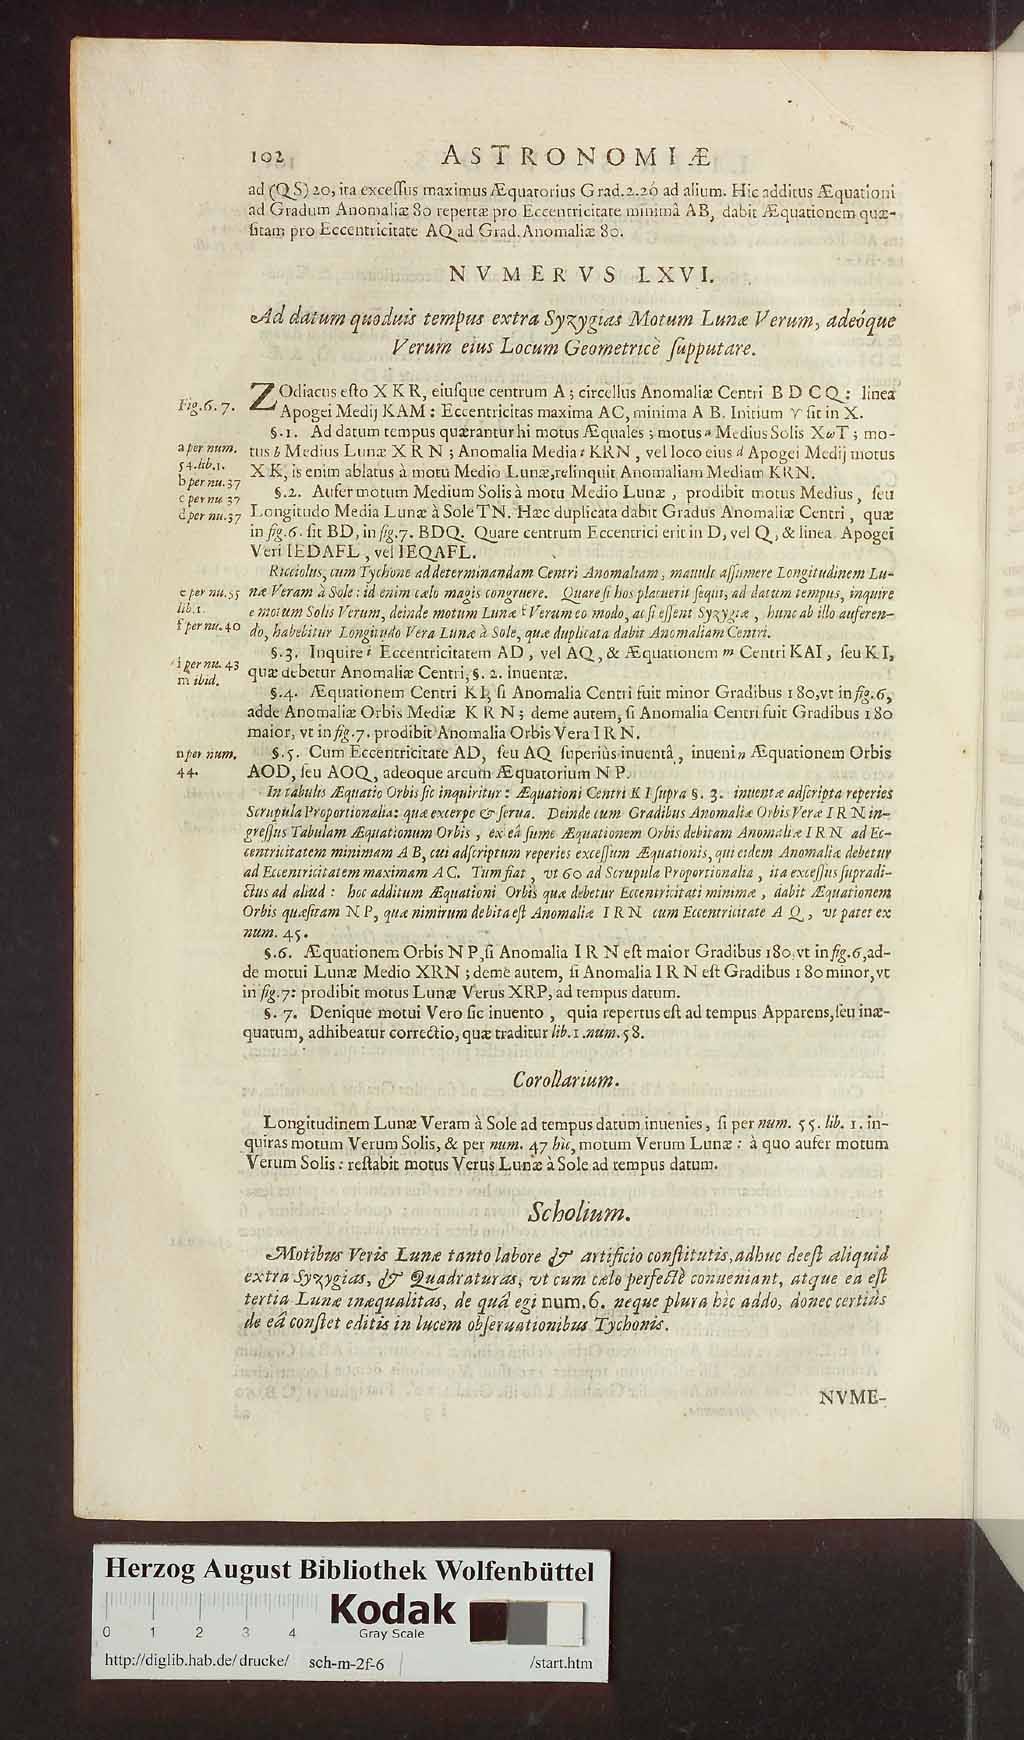 102 ASTRONOMIÆ
ad (QS) 20, ita excessus maximus Æquatorius Grad.2.26 ad alium. Hic additus Æquationi
ad Gradum Anomaliæ 80 repertæ pro Eccentricitate minimâ AB, dabit Æquationem quæ-
sitam pro Eccentricitate AQ ad Grad. Anomaliæ 80.
NVMERVS LXVI.
Ad datum quoduis tempus extra Syzygias Motum Lunæ Verum, adeóque
Verum eius Locum Geometricè supputare.
Fig.6.7.
ZOdiacus esto X K R, eiusque centrum A; circellus Anomaliæ Centri B D C Q: linea
Apogei Medij KAM: Eccentricitas maxima AC, minima A B. Initium ♈ sit in X.
§.1. Ad datum tempus quærantur hi motus Æquales; motus a Medius Solis XωT; mo-
a per num.
54.lib.1.
tus b Medius Lunæ X R N; Anomalia Media c KRN, vel loco eius d Apogei Medij motus
X K, is enim ablatus à motu Medio Lunæ, relinquit Anomaliam Mediam KRN.
b per nu.37
c per nu 37
d per nu.37
§.2. Aufer motum Medium Solis à motu Medio Lunæ, prodibit motus Medius, seu
Longitudo Media Lunæ à Sole TN. Hæc duplicata dabit Gradus Anomaliæ Centri, quæ
in fig.6. sit BD, in fig.7. BDQ. Quare centrum Eccentrici erit in D, vel Q, & linea Apogei
Veri IEDAFL, vel IEQAFL.
Ricciolus, cum Tychone ad determinandam Centri Anomaliam, mauult assumere Longitudinem Lu-
e per nu.55
lib.1.
f per nu.40
næ Veram à Sole: id enim cælo magis congruere. Quare si hos placuerit sequi, ad datum tempus, inquire
e motum Solis Verum, deinde motum Lunæ f Verum eo modo, ac si essent Syzygiæ, hunc ab illo auferen-
do, habebitur Longitudo Vera Lunæ à Sole, quæ duplicata dabit Anomaliam Centri.
i per nu. 43
m ibid.
§.3. Inquire i Eccentricitatem AD, vel AQ, & Æquationem m Centri KAI, seu K I,
quæ debetur Anomaliæ Centri, §. 2. inuentæ.
§.4. Æquationem Centri KI, si Anomalia Centri fuit minor Gradibus 180, vt in fig.6,
adde Anomaliæ Orbis Mediæ K R N; deme autem, si Anomalia Centri fuit Gradibus 180
maior, vt in fig.7. prodibit Anomalia Orbis Vera I R N.
n per num.
44.
§.5. Cum Eccentricitate AD, seu AQ superiùs inuentâ, inueni n Æquationem Orbis
AOD, seu AOQ, adeoque arcum Æquatorium N P.
In tabulis Æquatio Orbis sic inquiritur: Æquationi Centri K I supra §. 3. inuentæ adscripta reperies
Scrupula Proportionalia: quæ excerpe & serua. Deinde cum Gradibus Anomaliæ Orbis Veræ I R N in-
gressus Tabulam Æquationum Orbis, ex eâ sume Æquationem Orbis debitam Anomaliæ I R N ad Ec-
centricitatem minimam A B, cui adscriptum reperies excessum Æquationis, qui eidem Anomaliæ debetur
ad Eccentricitatem maximam A C. Tum fiat, vt 60 ad Scrupula Proportionalia, ita excessus supradi-
ctus ad aliud: hoc additum Æquationi Orbis quæ debetur Eccentricitati minimæ, dabit Æquationem
Orbis quæsitam N P, quæ nimirum debita est Anomaliæ I R N cum Eccentricitate A Q, vt patet ex
num. 45.
§.6. Æquationem Orbis N P, si Anomalia I R N est maior Gradibus 180, vt in fig.6, ad-
de motui Lunæ Medio XRN; deme autem, si Anomalia I R N est Gradibus 180 minor, vt
in fig.7: prodibit motus Lunæ Verus XRP, ad tempus datum.
§. 7. Denique motui Vero sic inuento, quia repertus est ad tempus Apparens, seu inæ-
quatum, adhibeatur correctio, quæ traditur lib.1.num.58.
Corollarium.
Longitudinem Lunæ Veram à Sole ad tempus datum inuenies, si per num. 55. lib. 1. in-
quiras motum Verum Solis, & per num. 47 hìc, motum Verum Lunæ: à quo aufer motum
Verum Solis: restabit motus Verus Lunæ à Sole ad tempus datum.
Scholium.
Motibus Veris Lunæ tanto labore & artificio constitutis, adhuc deest aliquid
extra Syzygias, & Quadraturas, vt cum cælo perfectè conueniant, atque ea est
tertia Lunæ inæqualitas, de quâ egi num.6. neque plura hìc addo, donec certiùs
de eâ constet editis in lucem obseruationibus Tychonis.
NVME-
Herzog August Bibliothek Wolfenbüttel
Kodak
0 1 2 3 4 Gray Scale
http://diglib.hab.de/drucke/ sch-m-2f-6 /start.htm